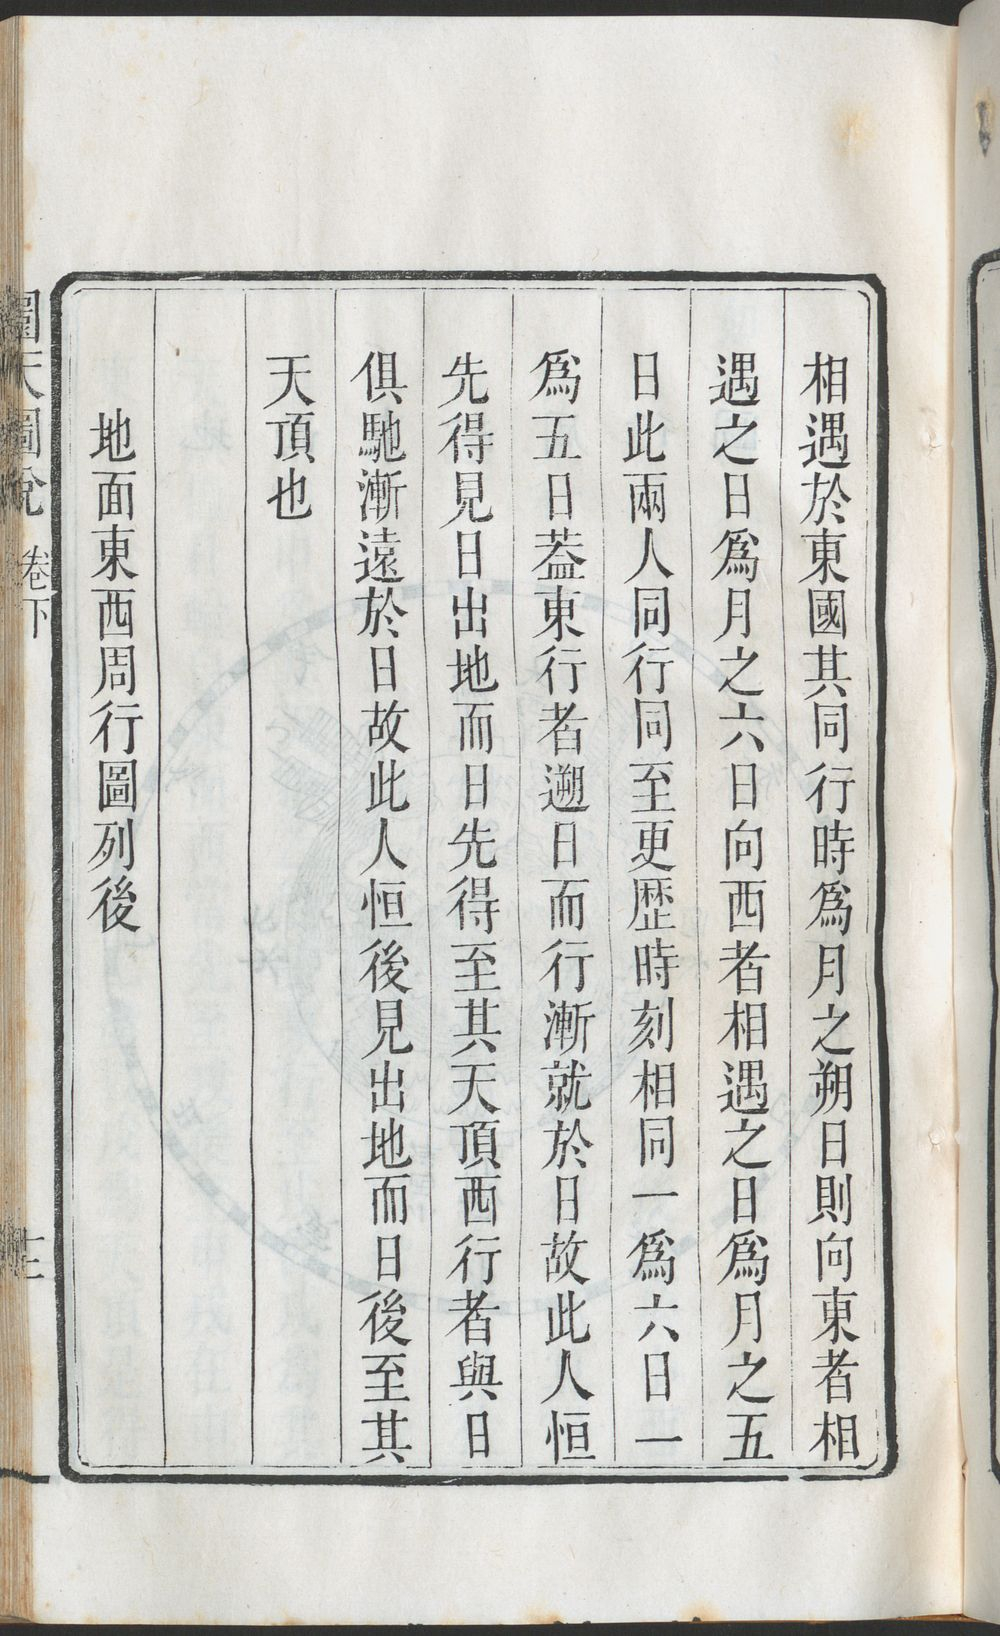 相遇於東國其同行時爲月之朔日則向東者相
遇之日爲月之六日向西者相遇之日爲月之五
日此兩人同行同至更歷時刻相同一爲六日一
爲五日葢東行者遡日而行漸就於日故此人恒
先得見日出地而日先得至其天頂西行者與日
俱馳漸遠於日故此人恒後見出地而日後至其
天頂也
地面東西周行圖列後
圜天圖說 卷下